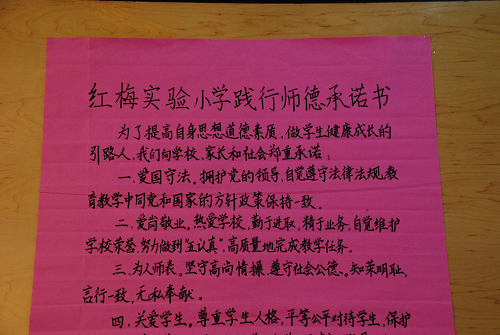 红梅实验小学践行师德承诺书
为了提高自身思想道德素质，做学生健康成长的
引路人，我们向学校、家长和社会郑重承诺：
一、爱国守法。拥护党的领导，自觉遵守法律法规，教
育教学中同党和国家的方针政策保持一致。
二、爱岗敬业。热爱学校，勤于进取，精于业务，自觉维护
学校荣誉，努力做到“五认真”，高质量地完成教学任务。
三、为人师表。坚守高尚情操，遵守社会公德。知荣明耻，
言行一致，无私奉献。
四、关爱学生。尊重学生人格，平等公平对待学生，保护